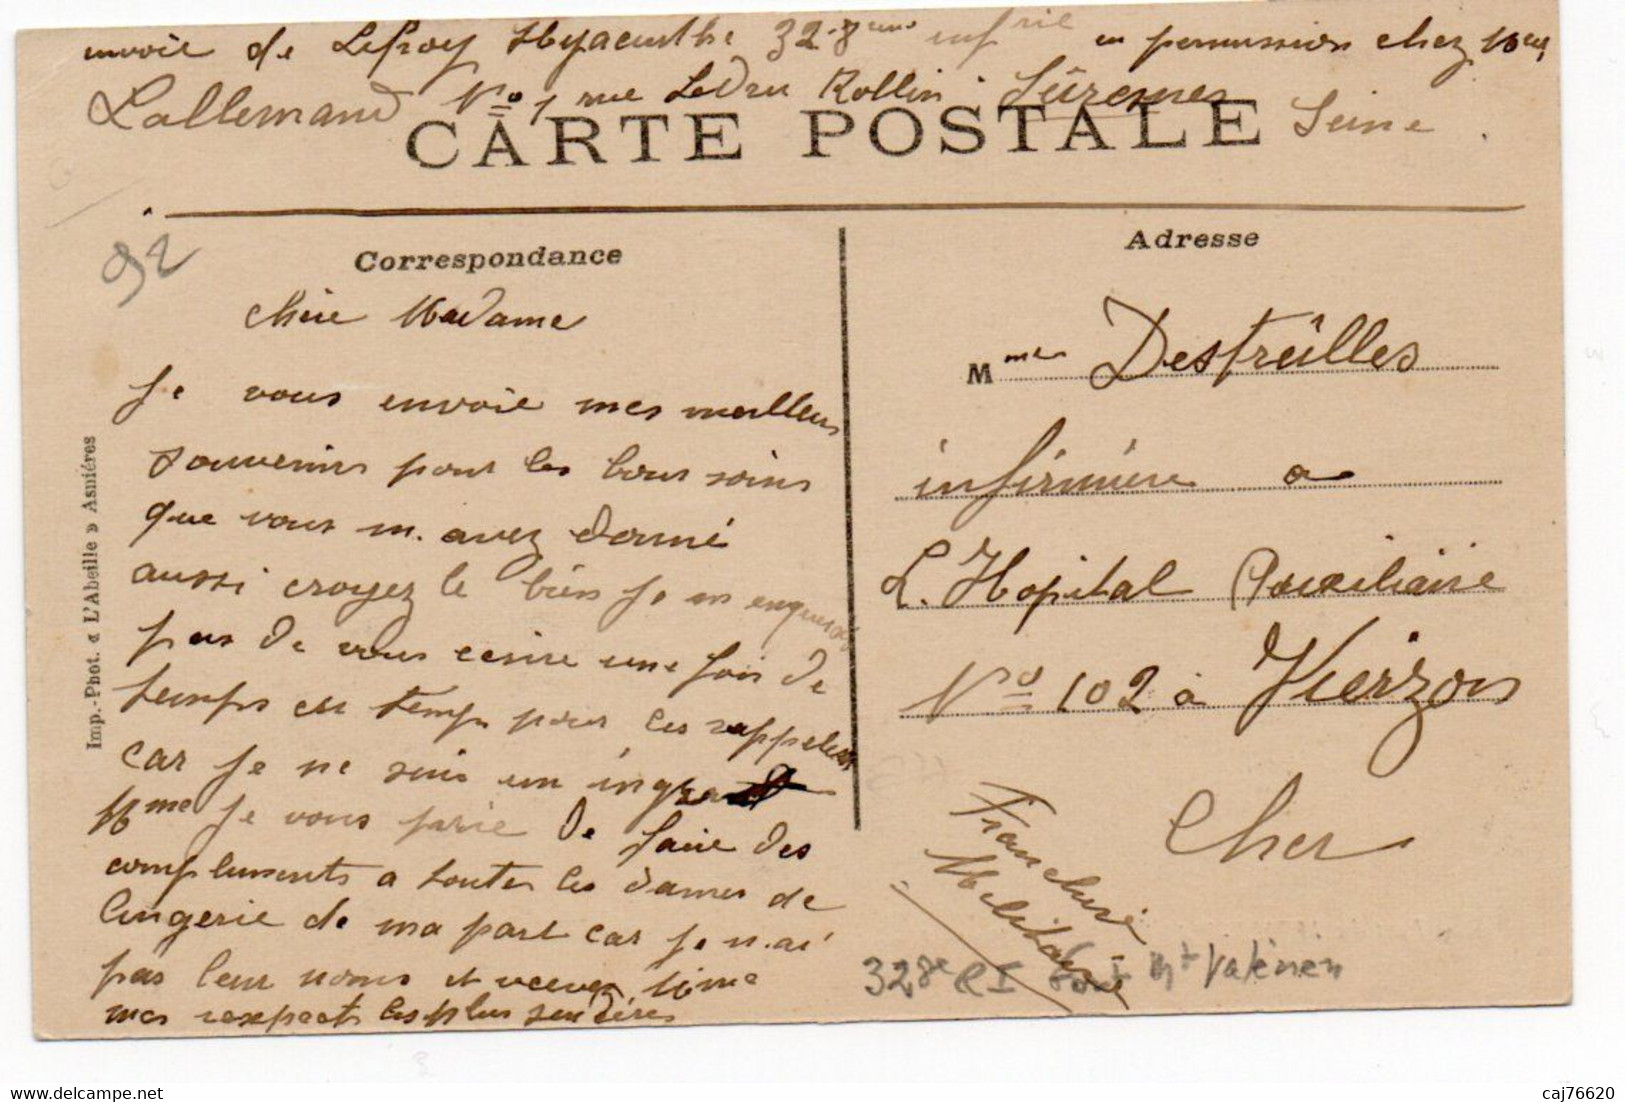 envoie de Lefroy Hyacinthe 328eme infrie en permission chez Mer
Lallemand No 7 rue Ledru Rollin Sûresnes Seine
CARTE POSTALE
92
Correspondance
Adresse
chère Madame
Je vous envoie mes meilleurs
souvenirs pour les bons soins
que vous m.avez donné
aussi croyez le bien je m
pas de vous ecrire une fois de
temps en temps pour les rappeler
car je ne suis un ingrat
Mme je vous prie de faire des
compliments a toutes les dames de
lingerie de ma part car je n.ai
pas leur noms et recevez Mme
mes respects les plus sincères
Mme Destreilles
infirmière a
L.Hopital Auxiliaire
No 102 à Vierzon
Cher
Franchise
Militaire
328e RI Fort Mt Valérien
Imp.-Phot. « L'Abeille » Asnières
caj76620